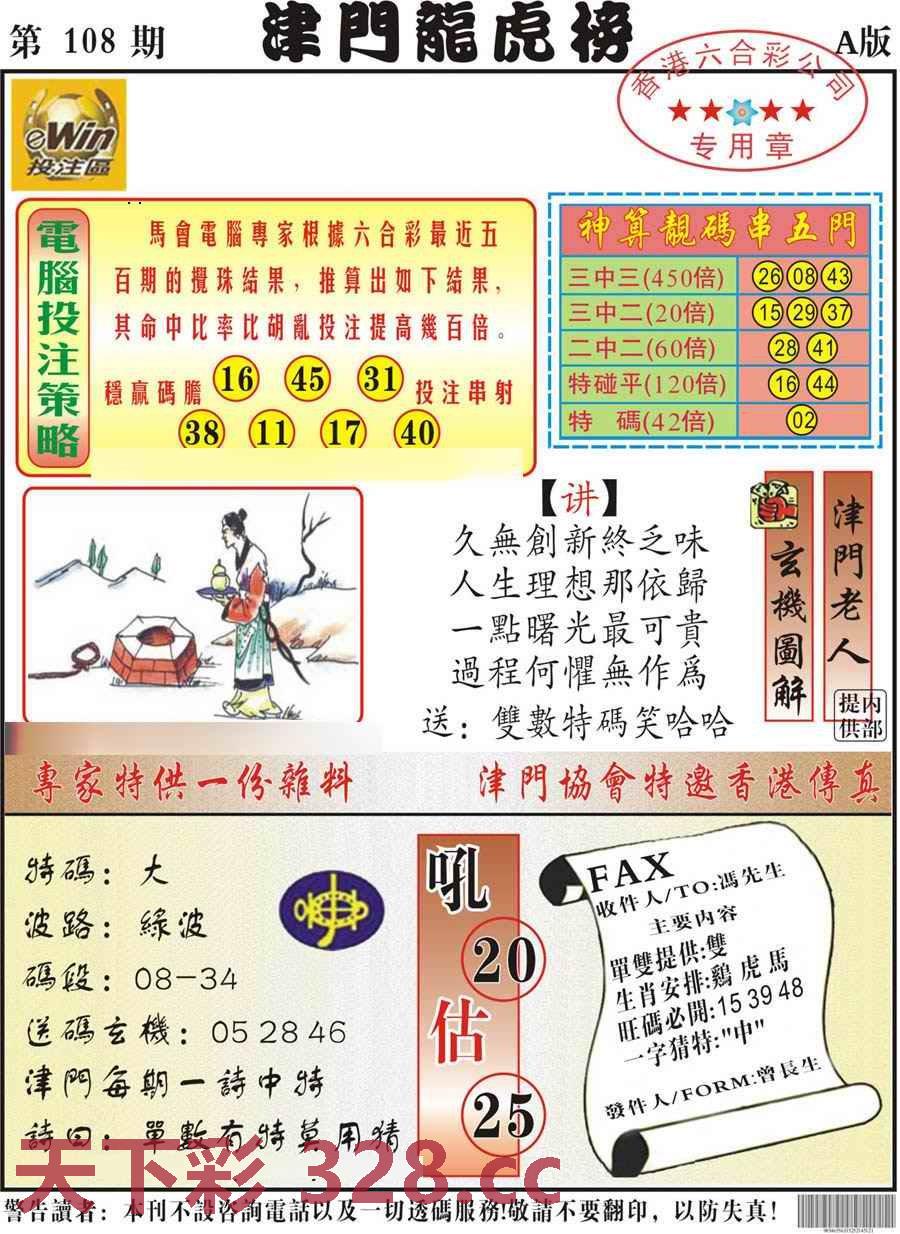 第 108 期
津門龍虎榜
A版
香港六合彩公司
专用章
eWin
投注區
電腦投注策略
馬會電腦專家根據六合彩最近五
百期的攪珠結果，推算出如下結果，
其命中比率比胡亂投注提高幾百倍。
穩贏碼膽 16 45 31 投注串射
38 11 17 40
神算靚碼串五門
三中三(450倍) 26 08 43
三中二(20倍) 15 29 37
二中二(60倍) 28 41
特碰平(120倍) 16 44
特 碼(42倍) 02
【讲】
久無創新終乏味
人生理想那依歸
一點曙光最可貴
過程何懼無作爲
送：雙數特碼笑哈哈
玄機圖解
津門老人
内部提供
專家特供一份雜料
津門協會特邀香港傳真
特碼：大
波路：綠波
碼段：08-34
送碼玄機：05 28 46
津門每期一詩中特
詩曰：單數有特莫用猜
吼
20
估
25
FAX
收件人/TO:馮先生
主要内容
單雙提供:雙
生肖安排:鷄虎馬
旺碼必開:15 39 48
一字猜特:"中"
發件人/FORM:曾長生
天下彩 328.cc
警告讀者：本刊不設咨詢電話以及一切透碼服務!敬請不要翻印，以防失真！